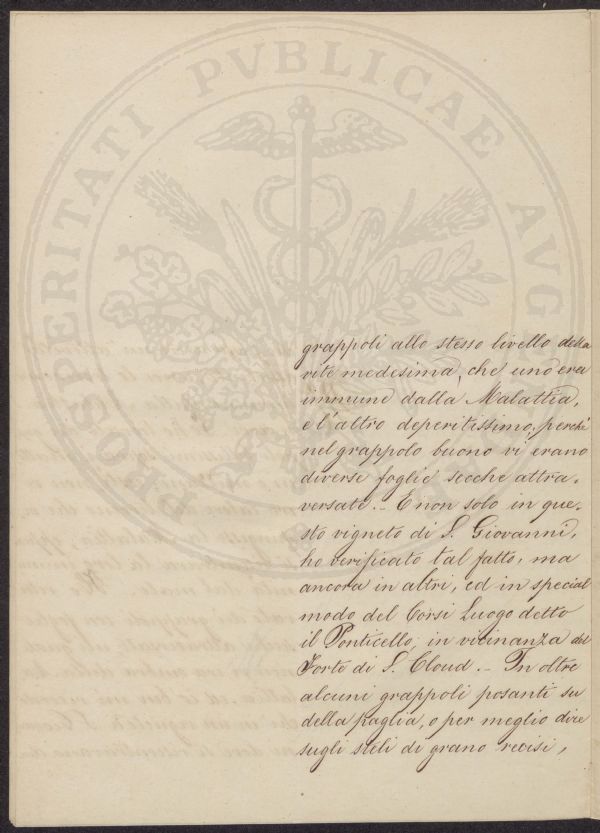 PROSPERITATI PVBLICAE AVGENDAE
grappoli allo stesso livello della
vite medesima, che uno era
immune dalla Malattia,
e l'altro deperitissimo, perchè
nel grappolo buono vi erano
diverse foglie secche attra-
versate.. E non solo in que-
sto vigneto di S. Giovanni,
ho verificato tal fatto, ma
ancora in altri, ed in special
modo del Corsi Luogo detto
il Ponticello, in vicinanza del
Forte di S. Cloud.. In oltre
alcuni grappoli posanti su
della paglia, o per meglio dire
sugli steli di grano recisi,